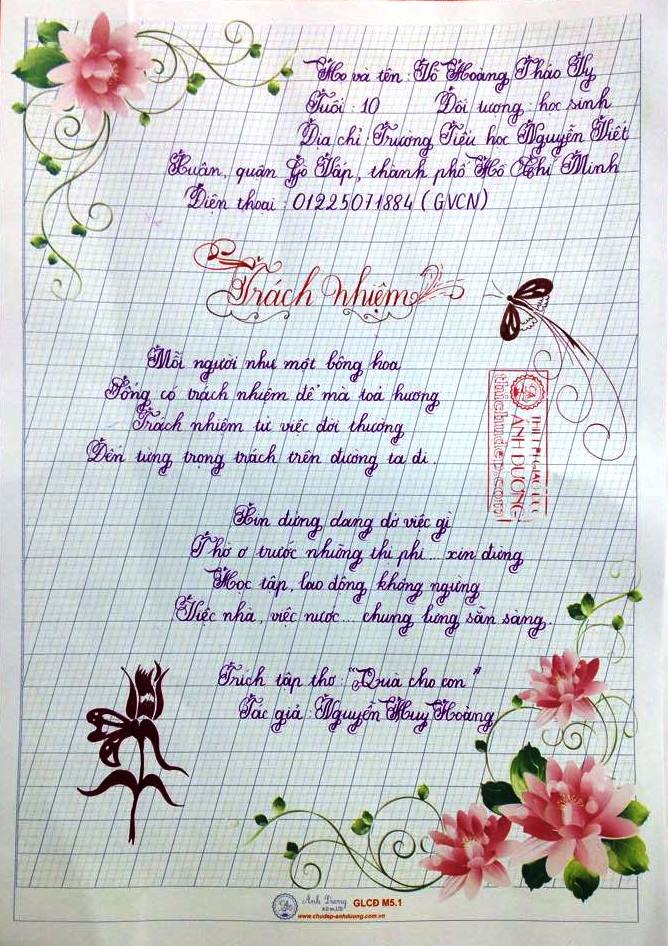 Họ và tên : Võ Hoàng Thảo Vy
Tuổi : 10 Đối tượng : học sinh
Địa chỉ : Trường Tiểu học Nguyễn Viết
Xuân, quận Gò Vấp, thành phố Hồ Chí Minh
Điện thoại : 01225071884 ( GVCN )
Trách nhiệm
Mỗi người như một bông hoa
Sống có trách nhiệm để mà toả hương
Trách nhiệm từ việc đời thường
Đến từng trọng trách trên đường ta đi.
Xin đừng dang dở việc gì
Thờ ơ trước những thị phi... xin đừng
Học tập, lao động, không ngừng
Việc nhà, việc nước... chung lưng sẵn sàng.
Trích tập thơ : "Quà cho con"
Tác giả : Nguyễn Huy Hoàng
ÁNH DƯƠNG
thichudep.com
Ánh Dương
GLCĐ M5.1
www.chudep-anhduong.com.vn